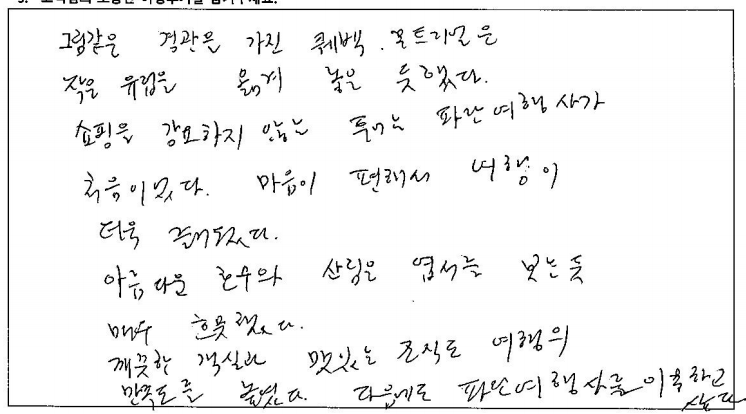 그림같은 경관을 가진 퀘백. 몬트리얼은
작은 유럽을 옮겨 놓은 듯했다.
쇼핑을 강요하지 않는 투어는 파란여행사가
처음이었다. 마음이 편해서 여행이
더욱 즐거웠다.
아름다운 호수와 산림은 엽서를 보는듯
매우 흐뭇했다.
깨끗한 객실과 맛있는 조식도 여행의
만족도를 높였다. 다음에도 파란여행사를 이용하고
싶다